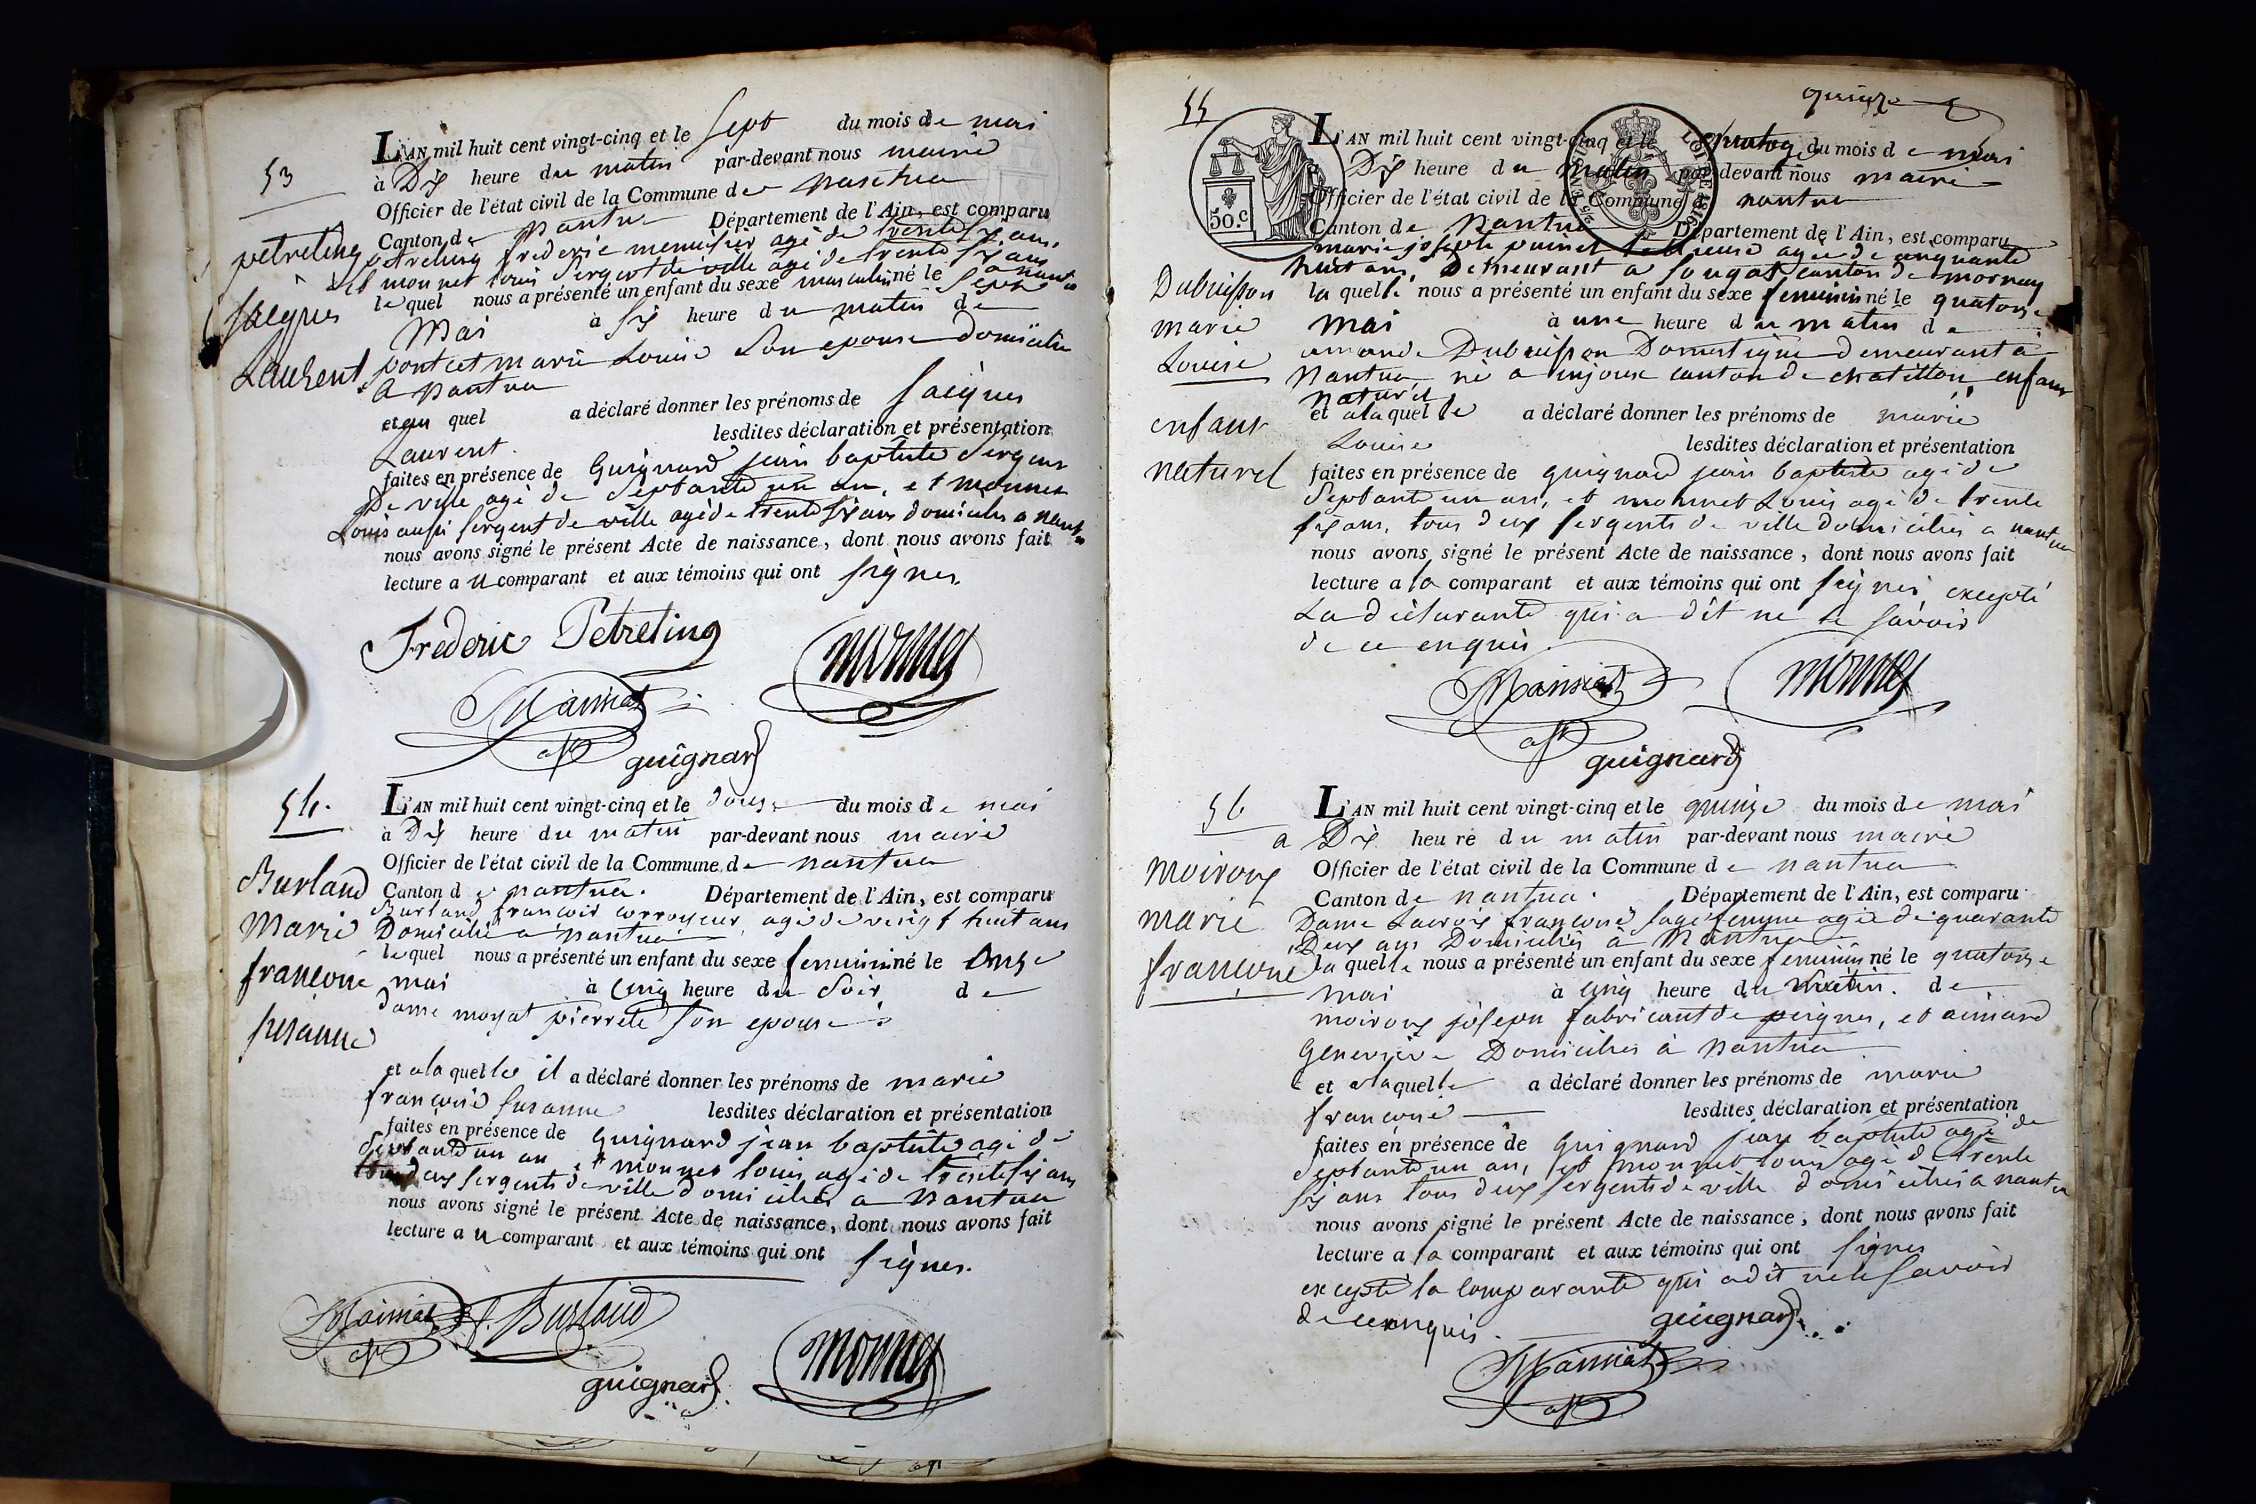 53
petreting
jacques
Laurent
L'AN mil huit cent vingt-cinq et le sept du mois de mai
à Dix heure du matin par-devant nous maire
Officier de l'état civil de la Commune de nantua
Canton de nantua Département de l'Ain, est comparu
petreting frederic menuisier agé de trente six ans
et monnet louis sergent de ville agé de trente six ans a nantua
lequel nous a présenté un enfant du sexe masculin né le sept
Mai à six heure du matin de
poncet marie Louise son epouse domiciliée
a nantua
et au quel a déclaré donner les prénoms de jacques
Laurent. lesdites déclaration et présentation
faites en présence de Guignard jean baptiste sergent
De ville agé de septante un an, et monnet
Louis aussi sergent de ville agé de trente six ans domiciliés a nantua
nous avons signé le présent Acte de naissance, dont nous avons fait
lecture au comparant et aux témoins qui ont signes.
Frederic Petreting
monnet
guignard
54.
Burland
Marie
françoise
susanne
L'AN mil huit cent vingt-cinq et le douze du mois de mai
à Dix heure du matin par-devant nous maire
Officier de l'état civil de la Commune de nantua
Canton de nantua. Département de l'Ain, est comparu
Burland françois corroyeur agé de vingt huit ans
Domicilié a nantua
lequel nous a présenté un enfant du sexe feminin né le onze
mai à cinq heure du soir de
dame moyat pierrete son epouse
et a la quelle il a déclaré donner les prénoms de marie
françoise susanne lesdites déclaration et présentation
faites en présence de Guignard jean baptiste agé de
septante un an et monnet louis agé de trente six ans
tous deux sergents de ville domiciliés a nantua
nous avons signé le présent Acte de naissance, dont nous avons fait
lecture au comparant et aux témoins qui ont signes.
f. Burland
guignard
monnet
quinze
55
50.c
LOI DE 1816
Dubuisson
marie
Louise
enfant
naturel
L'AN mil huit cent vingt-cinq et le quatorze du mois de mai
Dix heure du matin par-devant nous maire
Officier de l'état civil de la Commune nantua
Canton de Nantua Département de l'Ain, est comparu
marie josephe agée de cinquante
huit ans, Demeurant a songat canton de mornay
la quelle nous a présenté un enfant du sexe feminin né le quatorze
mai à une heure du matin de
amande Dubuisson Domestique demeurant a
Nantua né a injoux canton de chatillon, enfant
naturel
et a la quelle a déclaré donner les prénoms de marie
Louise lesdites déclaration et présentation
faites en présence de guignard jean baptiste agé de
septante un an, et monnet Louis agé de trente
six ans, tous deux sergents de ville domiciliés a nantua
nous avons signé le présent Acte de naissance, dont nous avons fait
lecture a la comparant et aux témoins qui ont signés excepté
La déclarante qui a dit ne le savoir
de ce enquis.
monnet
guignard
56
moiroux
marie
françoise
L'AN mil huit cent vingt-cinq et le quinze du mois de mai
a Dix heure du matin par-devant nous maire
Officier de l'état civil de la Commune de nantua
Canton de nantua. Département de l'Ain, est comparu
Dame Lacroix françoise sage femme agée de quarante
Deux ans Domiciliée à Nantua
la quelle nous a présenté un enfant du sexe feminin né le quatorze
mai à cinq heure du matin. de
moiroux joseph fabricant de peignes, et aimard
Genevieve Domiciliés à nantua
et a la quelle a déclaré donner les prénoms de marie
françoise lesdites déclaration et présentation
faites en présence de Guignard jean baptiste agé de
septante un an, et monnet louis agé de trente
six ans tous deux sergents de ville domiciliés a nantua
nous avons signé le présent Acte de naissance, dont nous avons fait
lecture a la comparant et aux témoins qui ont signes
excepté la comparante qui a dit ne le savoir
de ce enquis.
guignard